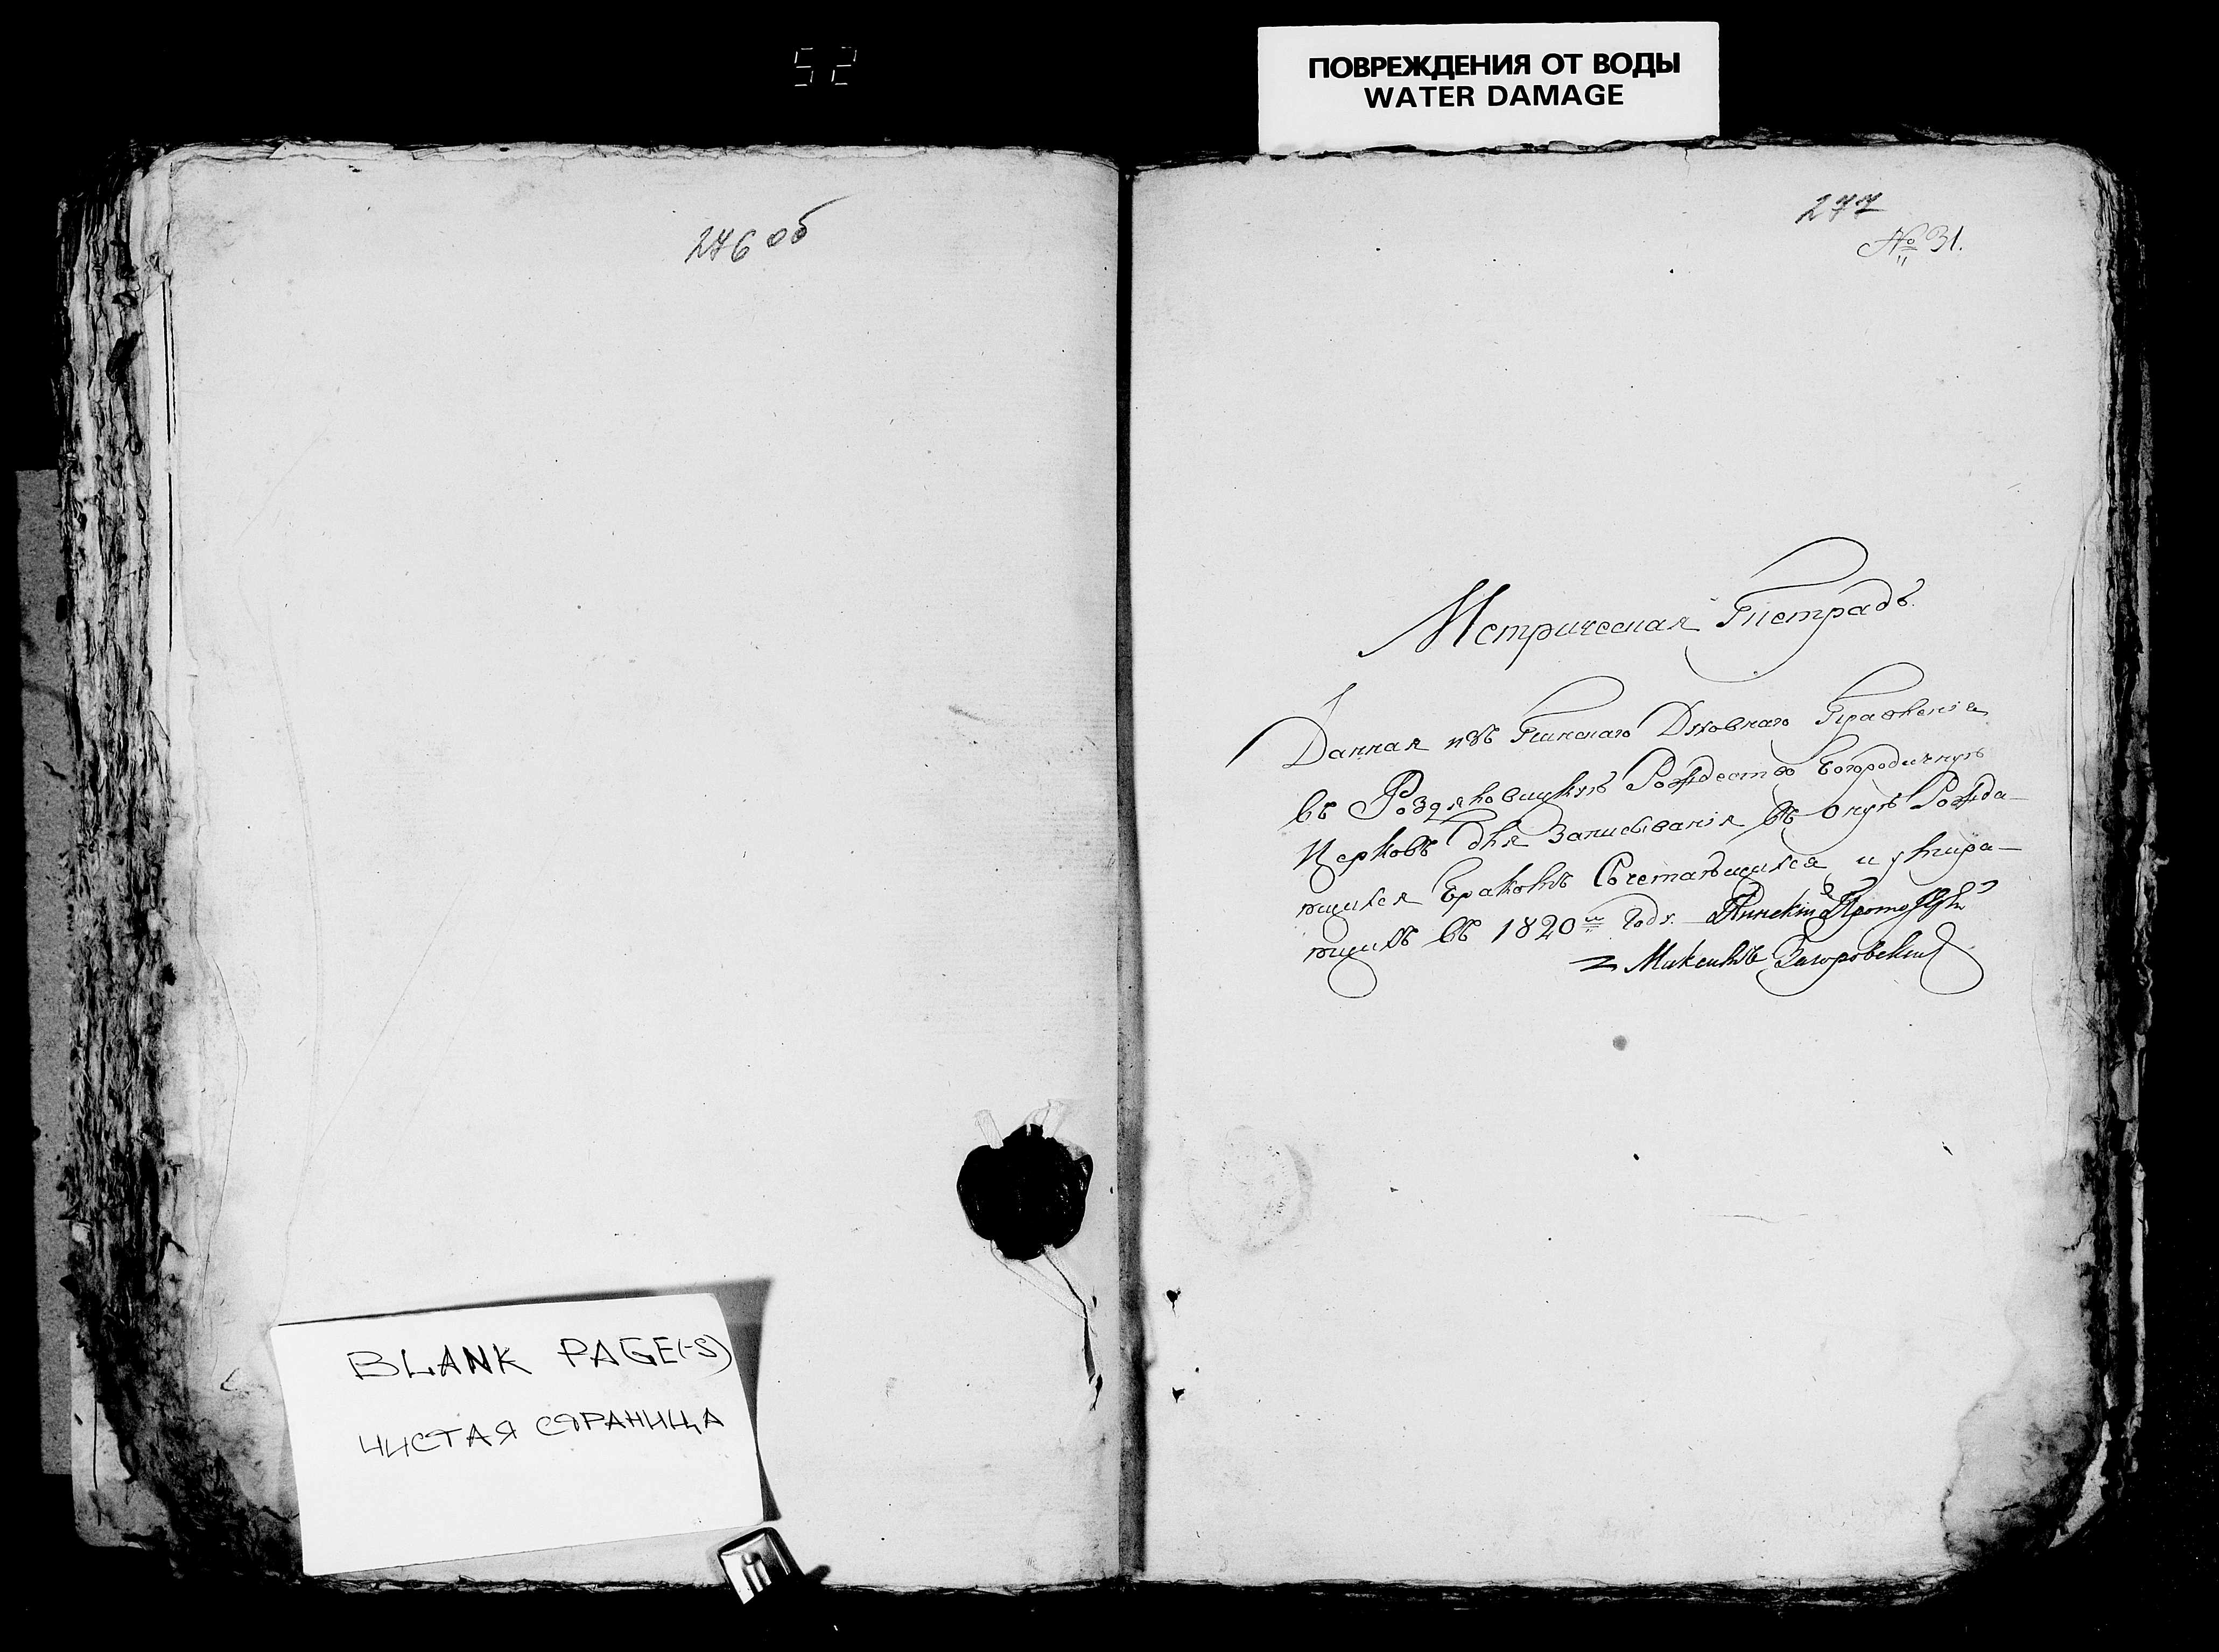 52
ПОВРЕЖДЕНИЯ ОТ ВОДЫ
WATER DAMAGE
276 об
277
№ 31.
Метрическая Тетрадь
Данная изъ Пинскаго Духовнаго Правленія
въ Рождество Богородичную
Церковь для Записыванія въ оную Рожда-
ющихся Бракомъ Сочетавшихся и умира-
ющихъ въ 1820м Году. Пинскій
Максимъ Загоровскій
BLANK PAGE(-S)
ЧИСТАЯ СТРАНИЦА